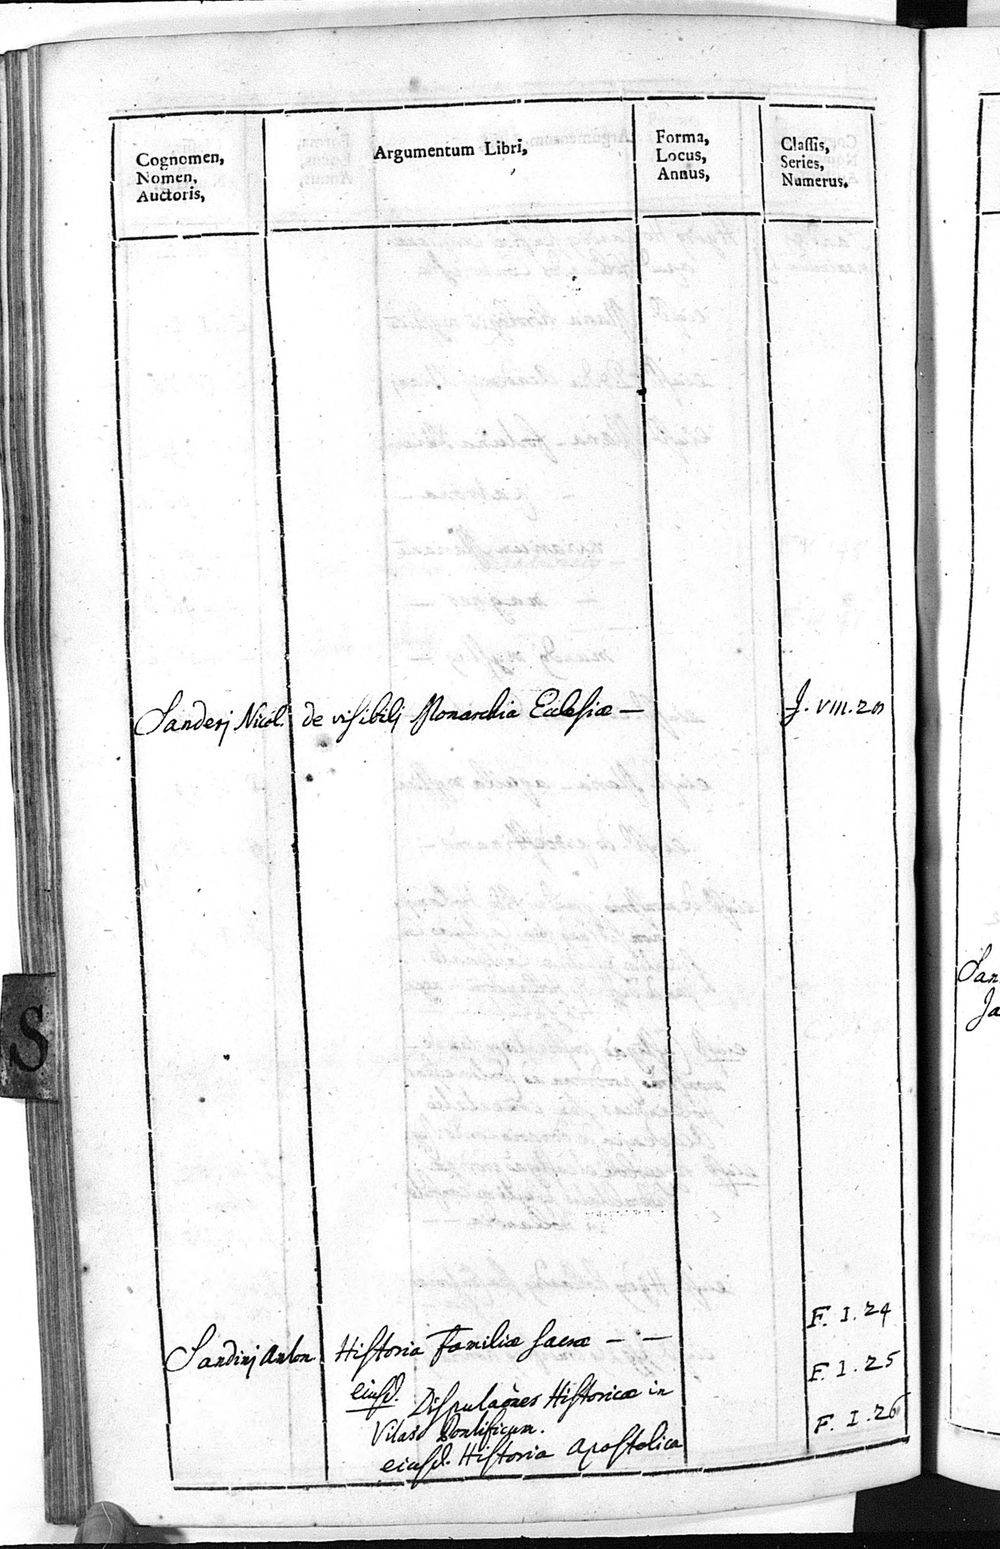 Cognomen,
Nomen,
Auctoris,
Argumentum Libri,
Forma,
Locus,
Annus,
Classis,
Series,
Numerus.
Sanderj Nicol. de visibilj Monarchia Ecclesiæ — J. VIII. 20
S
San
Ja
F. I. 24
Sandinj Anton Historia Familiæ sacræ — —
F. I. 25
eiusd. Disputaões Historicæ in
Vitas Pontificum.
F. I. 26
eiusd. Historia Apostolica